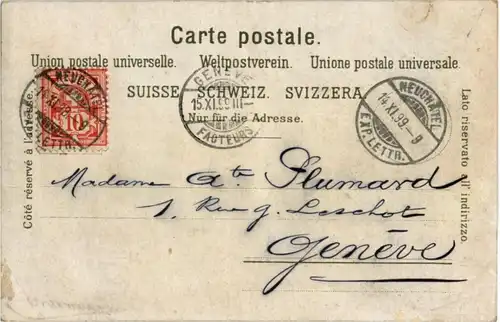 Carte postale.
Union postale universelle. Weltpostverein. Unione postale universale.
SUISSE. SCHWEIZ. SVIZZERA.
Nur für die Adresse.
Côté réservé à l'adresse.
Lato riservato all' indirizzo.
NEUCHATEL
10
LETTR.
GENÈVE
15.XI.99.III-
FACTEURS
NEUCHATEL
14.XI.99.-9
EXP.LETTR.
Madame Ate Plumard
1, Rue J. Leschot
Genève